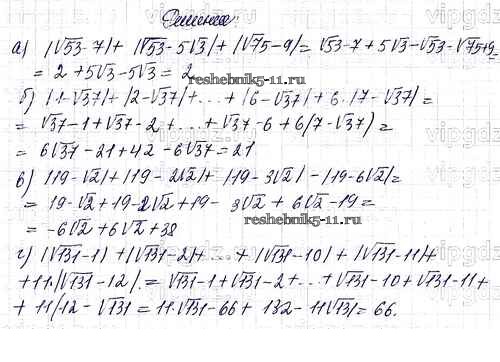 Решение
а) |√53-7| + |√53-5√3| + |√75-9| = √53-7+5√3-√53-√75+9=
= 2+5√3-5√3 = 2
reshebnik5-11.ru
б) |1-√37| + |2-√37| + ... + |6-√37| + 6·|7-√37| =
= √37-1+√37-2+...+√37-6+6(7-√37) =
= 6√37-21+42-6√37=21
в) |19-√2| + |19-2√2| + |19-3√2| - |19-6√2| =
= 19-√2+19-2√2+19-3√2+6√2-19=
reshebnik5-11.ru
= -6√2+6√2+38
г) |√131-1| + |√131-2| + ... + |√131-10| + |√131-11| +
+11·|√131-12| = √131-1+√131-2+...+√131-10+√131-11+
+ 11|12-√131 = 11·√131-66+132-11√131 = 66.